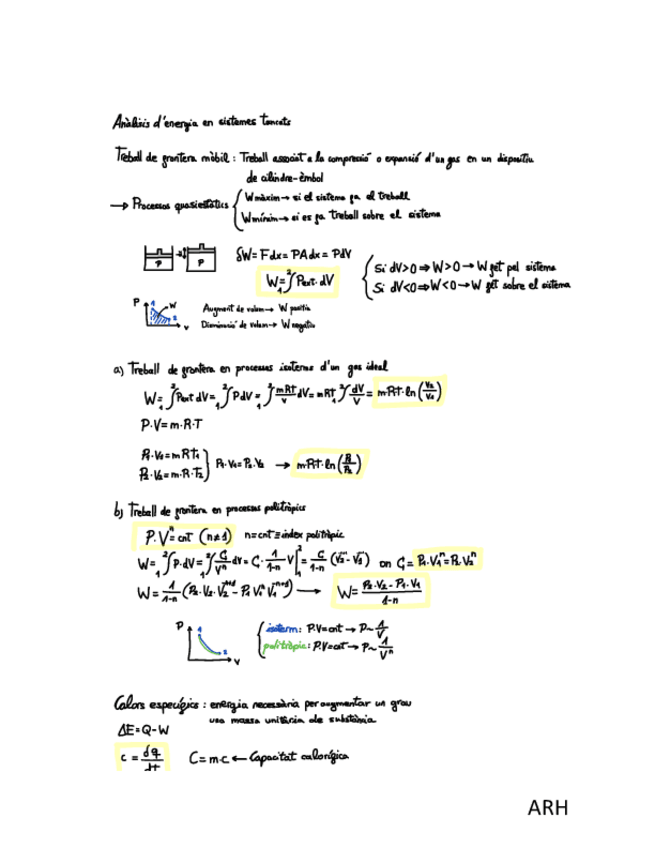 Anàlisis d'energia en sistemes tancats
Treball de frontera mòbil : Treball associat a la compressió o expansió d'un gas en un dispositiu
de cilindre-èmbol
→ Processos quasiestàtics { W màxim → si el sistema fa el treball
W mínim → si es fa treball sobre el sistema
P P
δW = F dx = PA dx = P dV
W = ₁∫² Pext · dV
Si dV>0 ⇒ W>0 → W fet pel sistema
Si dV<0 ⇒ W<0 → W fet sobre el sistema
P 1 W 2 V
Augment de volum → W positiu
Disminució de volum → W negatiu
a) Treball de frontera en processos isoterms d'un gas ideal
W = ₁∫² Pext dV = ₁∫² P dV = ₁∫² mRT/V dV = mRT ₁∫² dV/V = m·R·T·ln(V₂/V₁)
P·V = m·R·T
P₁·V₁ = m R T₁
P₂·V₂ = m·R·T₂ } P₁·V₁ = P₂·V₂ → m·R·T·ln(P₁/P₂)
b) Treball de frontera en processos politròpics
P·Vⁿ = cnt (n≠1) n = cnt ≡ índex politròpic
W = ₁∫² P·dV = ₁∫² C/Vⁿ dV = C · 1/1-n V |₁² = C/1-n (V₂ - V₁) on C = P₁·V₁ⁿ = P₂·V₂ⁿ
W = 1/1-n (P₂·V₂ⁿ·V₂⁻ⁿ⁺¹ - P₁V₁ⁿ V₁⁻ⁿ⁺¹) → W = P₂·V₂ - P₁·V₁ / 1-n
P 1 2 V
isoterm: P·V = cnt → P ~ 1/V
politròpic: P·V = cnt → P ~ 1/Vⁿ
Calors específics : energia necessària per augmentar un grau
una massa unitària de substància
ΔE = Q - W
c = δq/dT C = m·c ← Capacitat calorífica
ARH